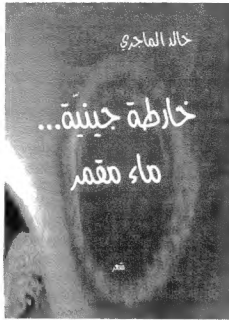 خالد الماجري
خارطة جينيّة...
ماء مقمر
شعر